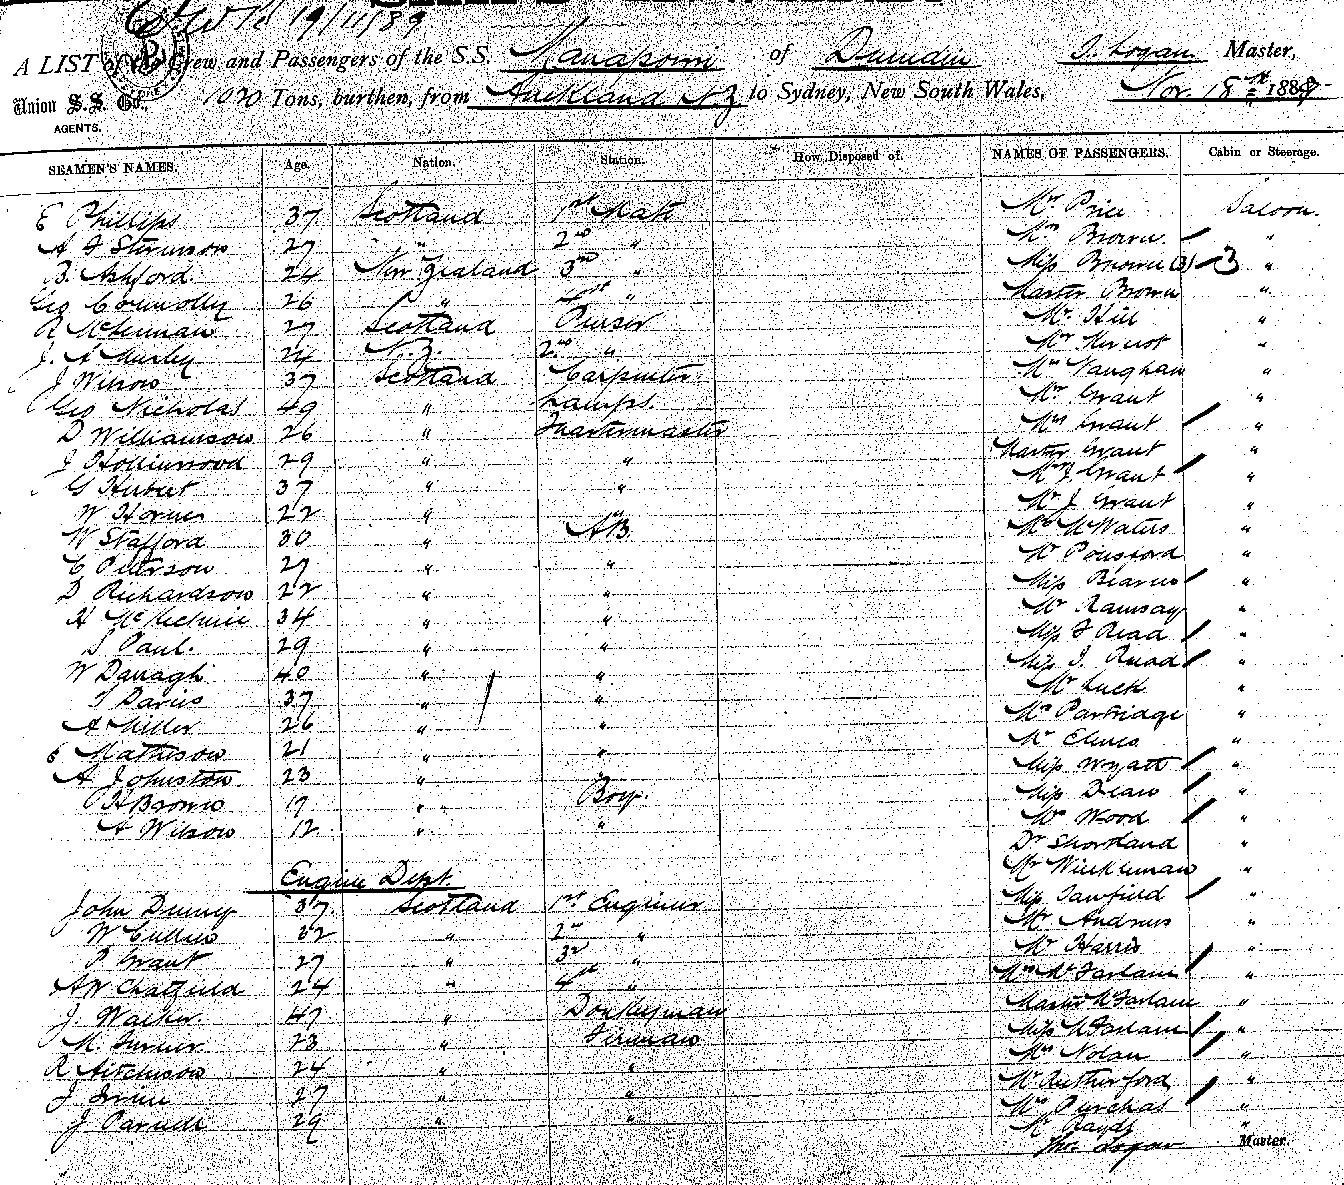 19/11/89
A LIST of the Crew and Passengers of the S.S. Manapouri of Dunedin J. Logan Master,
Union S.S. Co., 1020 Tons, burthen, from Auckland NZ to Sydney, New South Wales, Nov 18th 1889
AGENTS.
SEAMEN'S NAMES. Age. Nation. Station. How Disposed of. NAMES OF PASSENGERS. Cabin or Steerage.
E Phillips 37 Scotland 1st Mate Mr Price Saloon.
A F Stevenson 27 " 2nd " Mrs Brown "
B. Ashford 24 New Zealand 3rd " Miss Brown (3) 3 "
Geo Connolly 26 " 4th " Master Brown "
R McLennan 27 Scotland Purser Mr Hill "
J. A 24 N.Z. 2nd " Mr "
J Wilson 37 Scotland Carpenter Mr Vaughan "
Geo Nicholas 49 " Lamps. Mr Grant "
D Williamson 26 " Quartermaster Mrs Grant "
J Hollinwood 29 " " Master Grant "
G Herbert 37 " " Mrs J. Grant "
W Horner 22 " " Mr J Grant "
W Stafford 30 " AB. McWaters "
C Peterson 27 " " Mr Ponsford "
D Richardson 22 " " Miss "
H McKechnie 34 " " Mr Ramsay "
Paul. 29 " " Miss F Read "
W Darragh 40 " " Miss J. Read "
Davies 37 " " Mr Luck "
A Miller 26 " " Mr Partridge "
Matheson 21 " " Mr "
A Johnston 23 " " Miss Wyatt "
H Brown 19 " Boy. Miss Dean "
A Wilson 12 " " Wood "
Dr Shortland "
Engine Dept. Mr Winkleman "
John Denny 37 Scotland 1st Engineer Miss "
W 32 " 2nd " Mr Andrews "
P. Grant 27 " 3rd " Mr Harris "
A W Chatfield 24 " 4th " Mrs McFarlane "
J. Walker 47 " Donkeyman Master McFarlane "
M. Turner 23 " Fireman Miss McFarlane "
R Aitchison 24 " " Mrs Nolan "
J 27 " " Mr Rutherford "
J 29 " " Mrs Purchas "
Mr "
Logan Master.